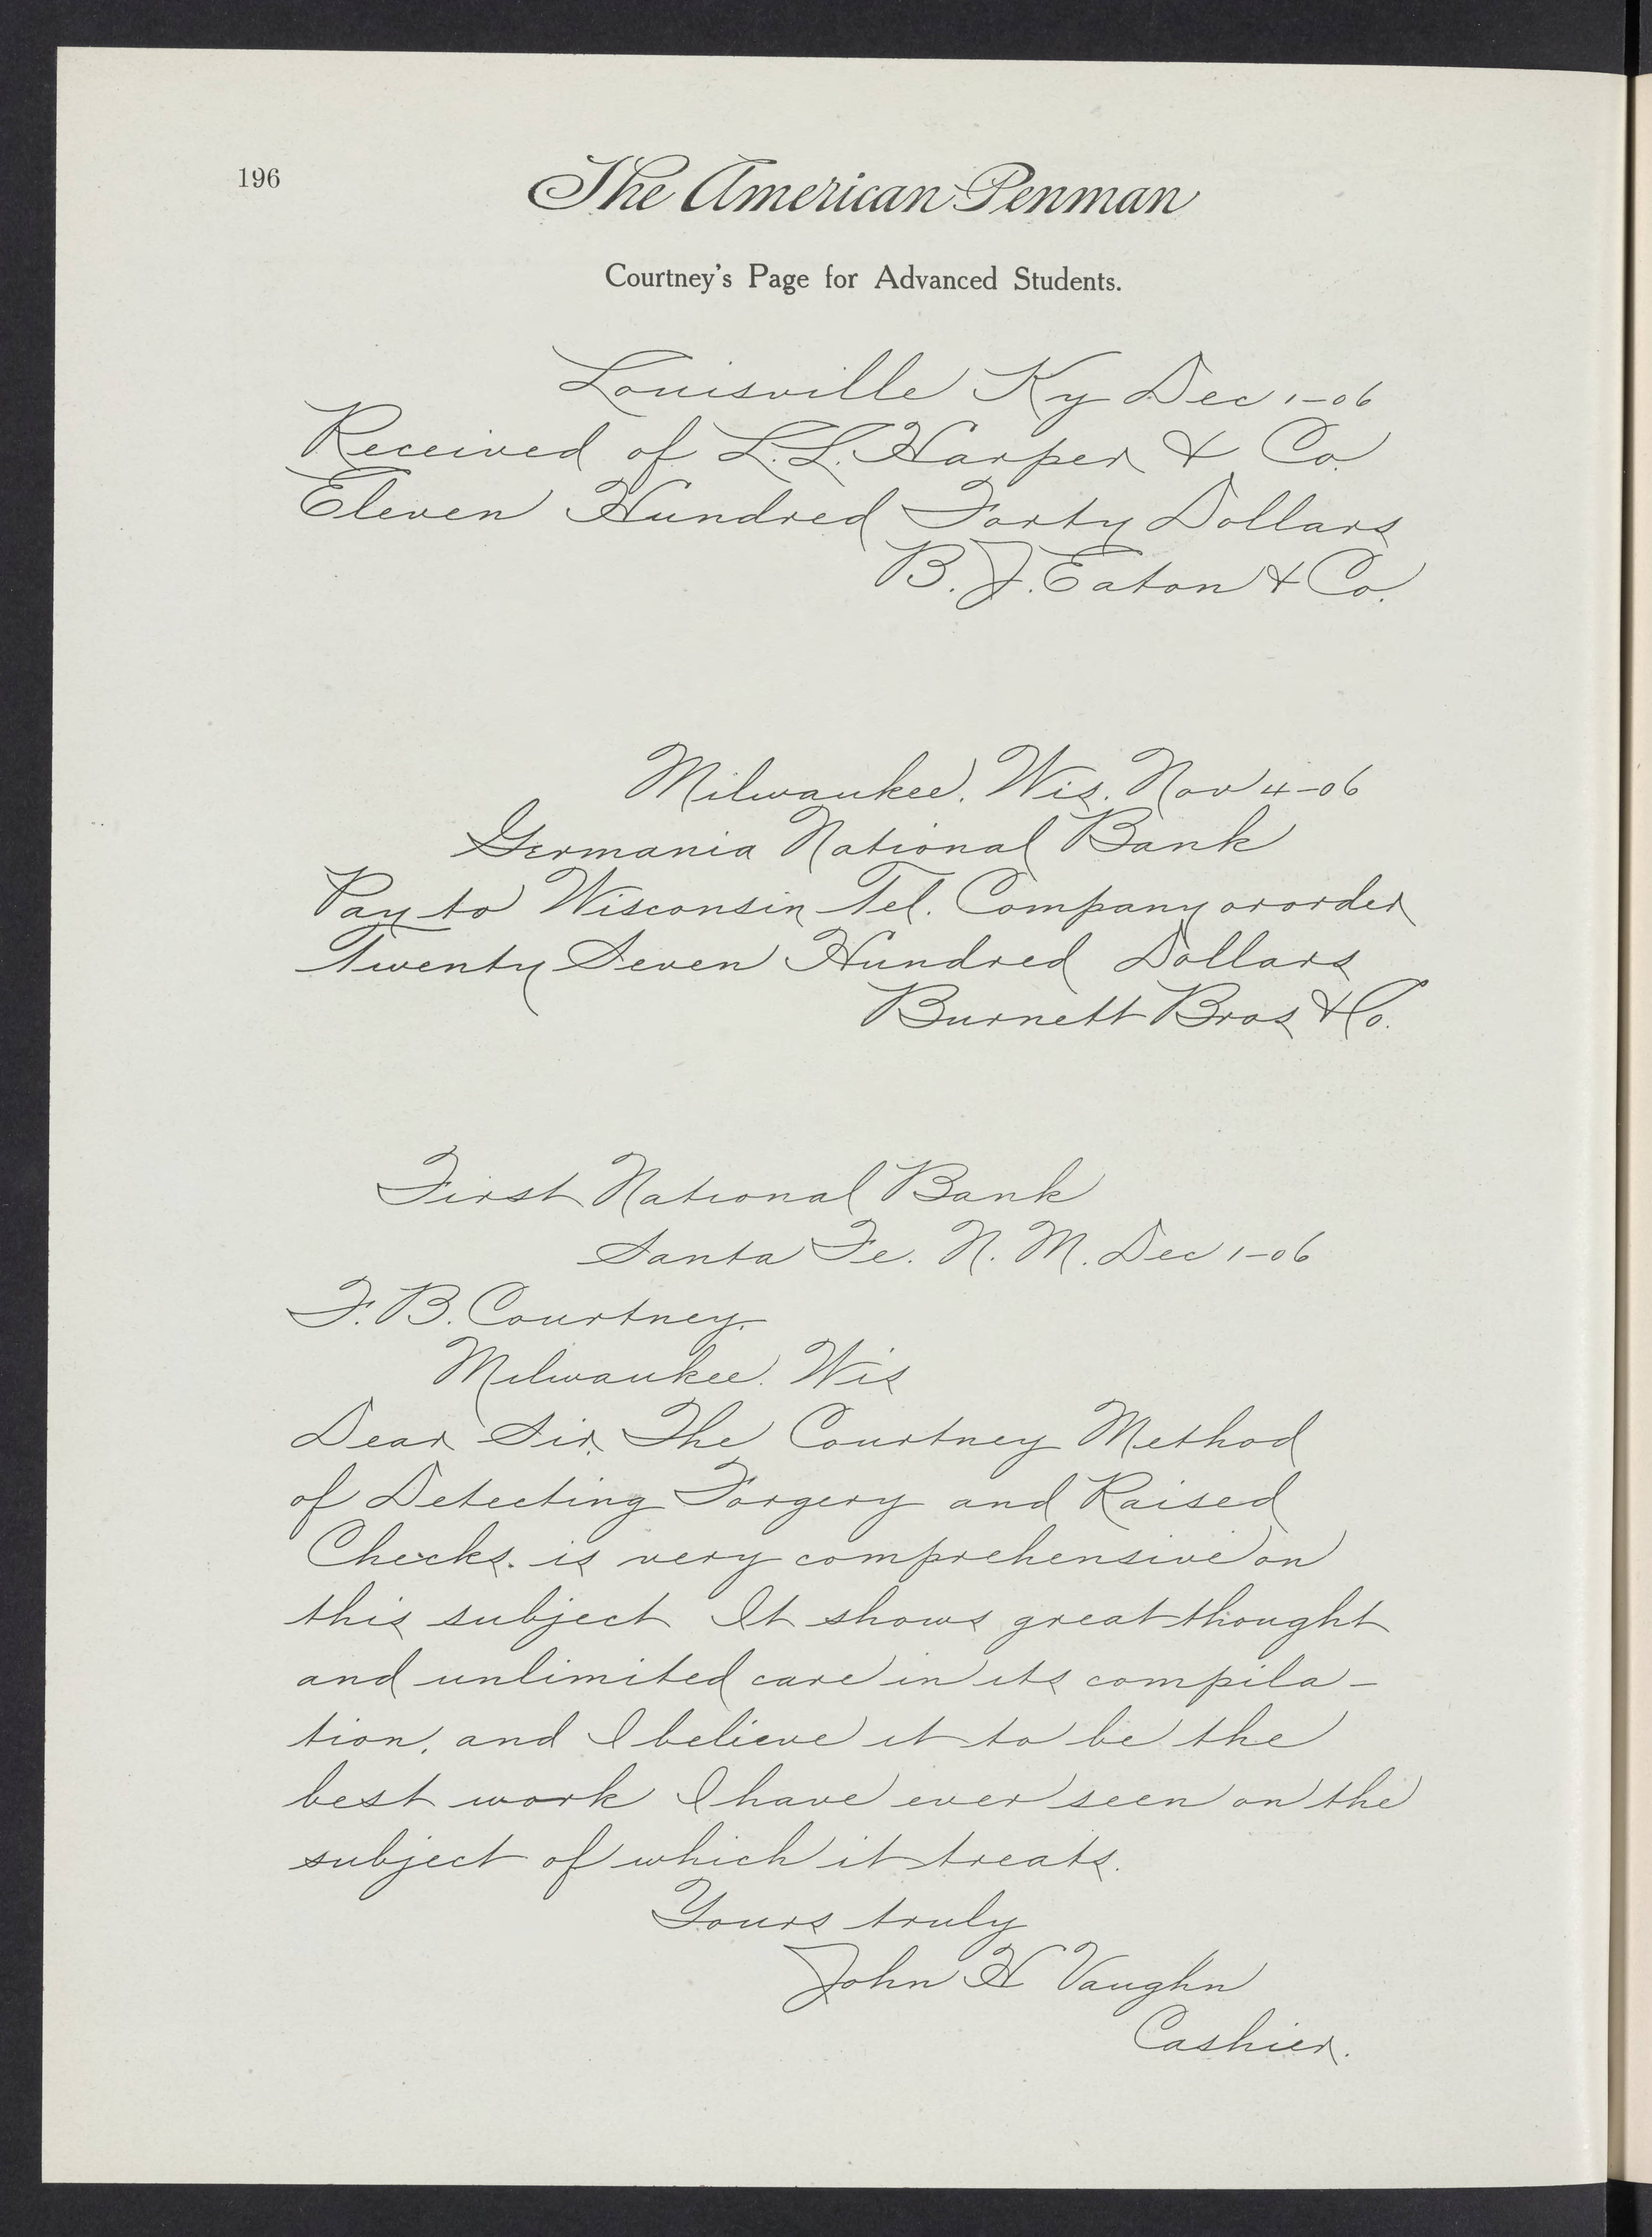 196
The American Penman
Courtney's Page for Advanced Students.
Louisville Ky Dec 1-06
Received of L. L. Harper & Co.
Eleven Hundred Forty Dollars
B. J. Eaton & Co.
Milwaukee, Wis. Nov 4-06
Germania National Bank
Pay to Wisconsin Tel. Company or order
Twenty Seven Hundred Dollars
Burnett Bros & Co.
First National Bank
Santa Fe. N. M. Dec 1-06
F. B. Courtney.
Milwaukee. Wis
Dear Sir, The Courtney Method
of Detecting Forgery and Raised
Checks. is very comprehensive on
this subject It shows great thought
and unlimited care in its compila-
tion, and I believe it to be the
best work I have ever seen on the
subject of which it treats.
Yours truly
John H Vaughn
Cashier.